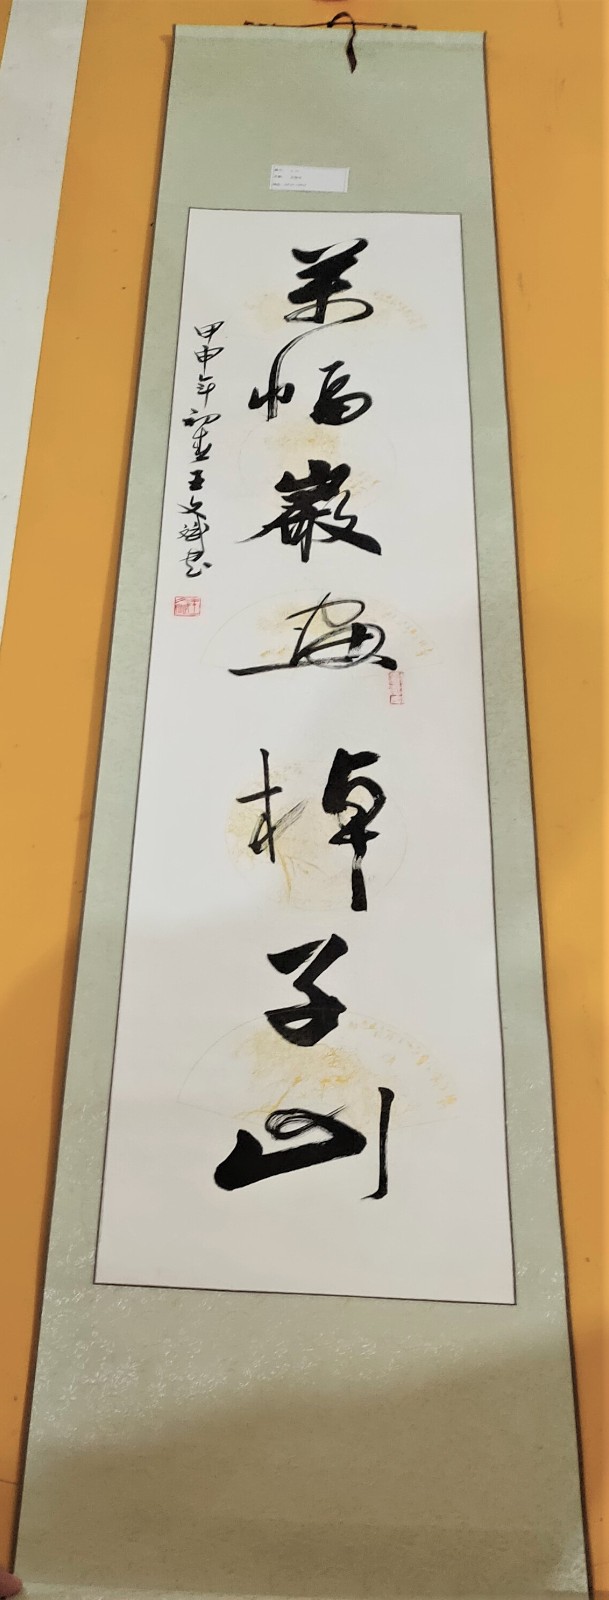 万幅巖画棹子山
甲申年初春王文斌书